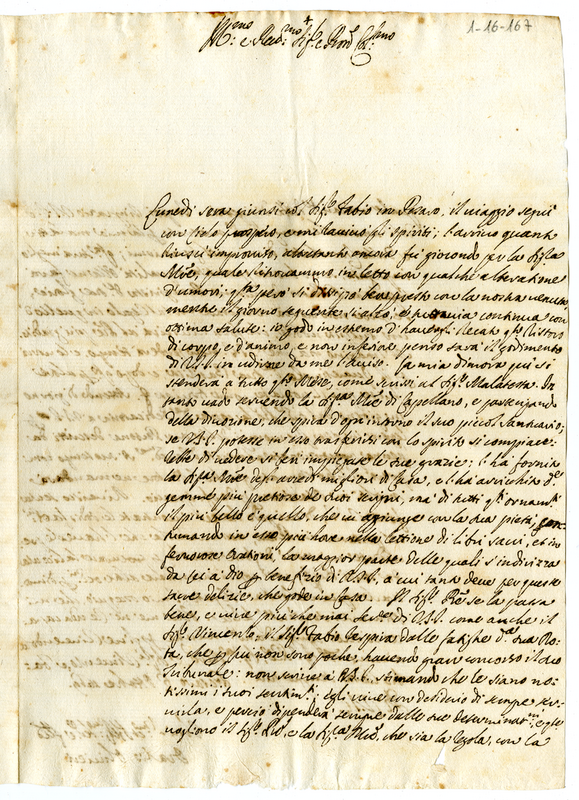 1-16-167
Ill.mo e Rev.mo Sig.r e Pron Col.mo
Lunedì sera giunsi col Sig.r Fabio in Pesaro, il viaggio seguì
con Cielo prospero, e mi ravvivò gli spiriti; l'arrivo quanto
riuscì improviso, altretanto ancora fu giocondo per la Sig.ra
Mře, quale ritrovammo in letto con qualche alteratione
d'umori; q.ta però si dissipò ben presto con la nostra venuta
mentre il giorno seguente si alzò, e tuttavia continua con
ottima salute: io godo in estremo d'haverle recato q.to ristoro
di corpo, e d'animo, e non inferiore penso sarà il godimento
di V.S.I. in udirne da me l'aviso. La mia dimora qui si
stenderà a tutto q.to Mese, come scrissi al Sig.r Malatesta. In
tanto vado servendo la Sig.ra Mře di Capellano, e partecipando
della divozione, che spira d'ogn'intorno il suo piccol Santuario;
se V.S.I. potesse in esso trasferirsi con lo spirito si compiace=
rebbe di vedere sì ben impiegate le sue grazie; l'ha fornito
la Sig.ra Mře de' arredi migliori di Casa, e l'ha arricchito d.e
gemme più pretiose de suoi scrigni, ma di tutti q.ti ornam.ti
il più bello è quello, che vi aggiunge con la sua pietà,
in esso più hore nella lettione di libri sacri, et in
fervorose orationi, la maggior parte delle quali s'indirizza
da lei a Dio p beneficio di V.S.I. a cui tanto deve per queste
sacre delizie, che gode in Casa. Il Sig.r Pře se la passa
bene, e vive più che mai ser.re di V.S.I. come anche il
Sig.r Vincenzo. Il Sig.r Fabio respira dalle fatiche d.a sua Ro=
ta, che p più non sono poche, havendo gran concorso il suo
Tribunale: non scrive a V.S.I. stimando che le siano no=
tissimi i suoi sentim.ti; egli vive con desiderio di sempre ser=
virla, e perciò dipenderà sempre dalle sue determinat.ni, e gle
vogliono il Sig.r Pře, e la Sig.ra Mře, che sia la regola, con la